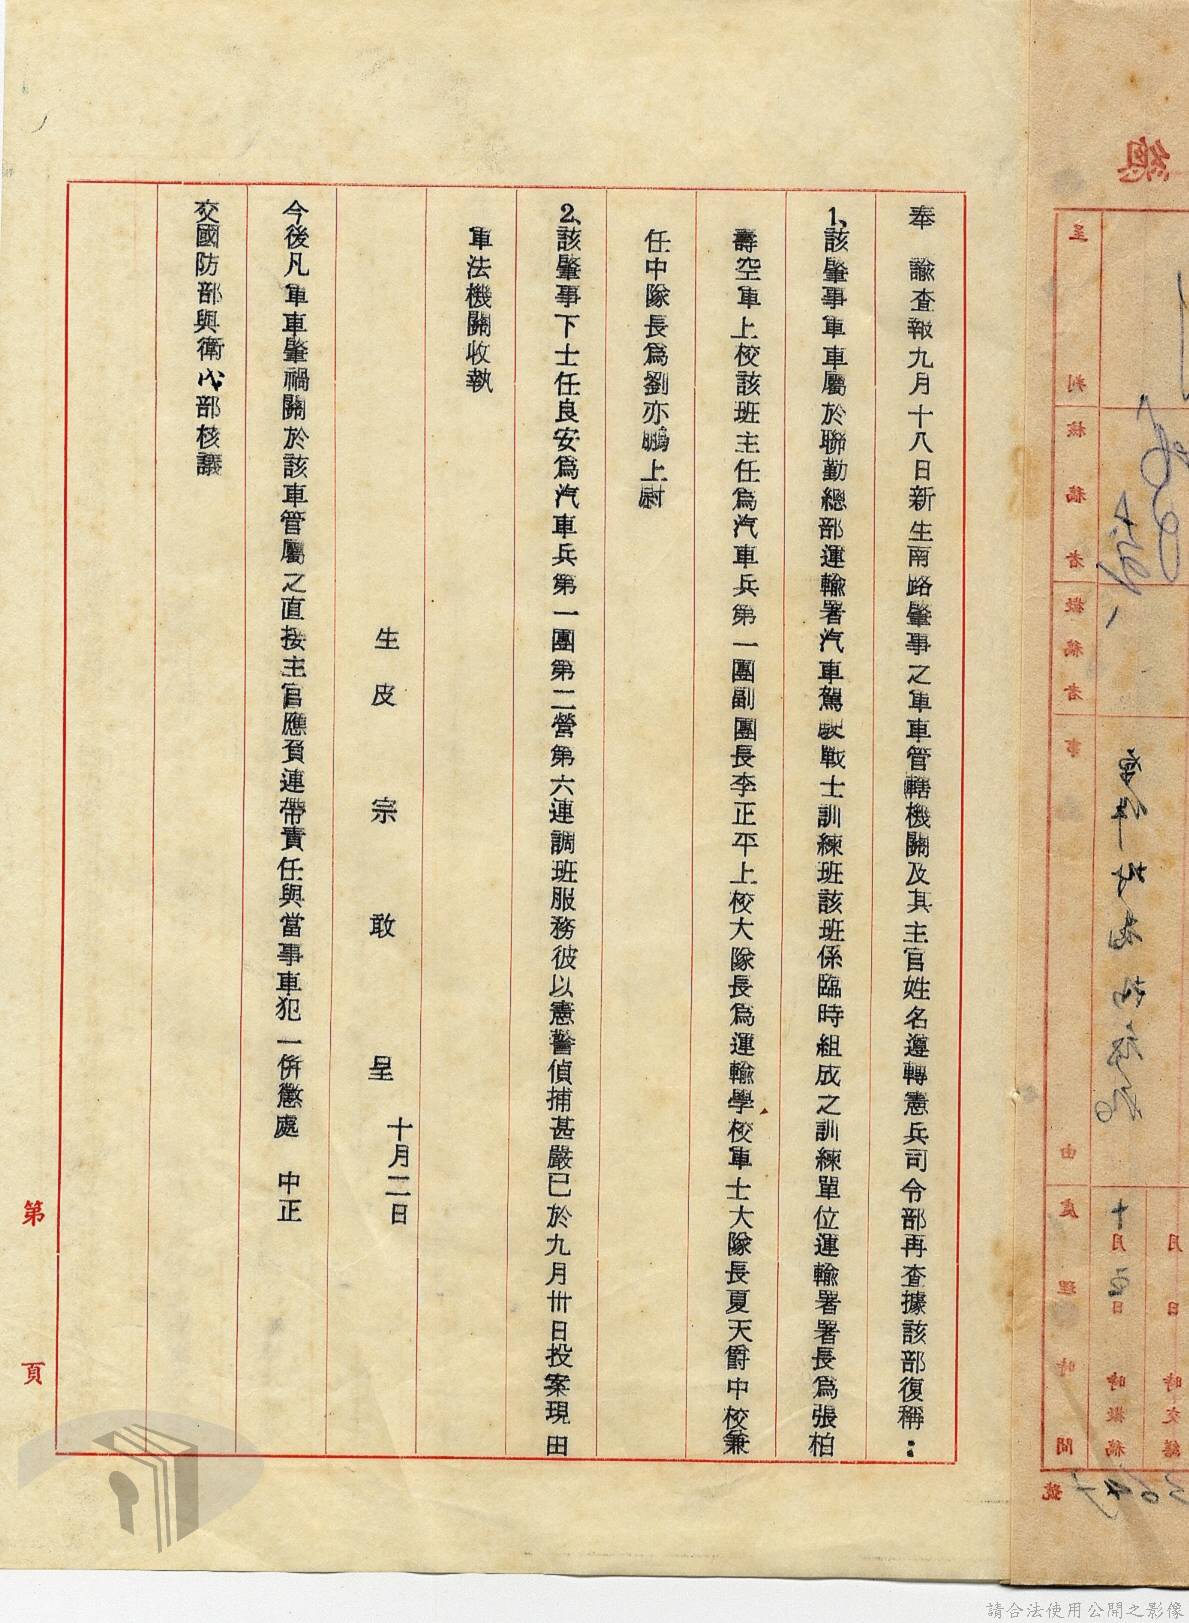 奉　諭查報九月十八日新生南路肇事之軍車管轄機關及其主官姓名遵轉憲兵司令部再查據該部復稱：
1、該肇事軍車屬於聯勤總部運輸署汽車駕駛戰士訓練班該班係臨時組成之訓練單位運輸署署長為張柏
壽空軍上校該班主任為汽車兵第一團副團長李正平上校大隊長為運輸學校軍士大隊長夏天爵中校兼
任中隊長為劉亦鵬上尉
2、該肇事下士任良安為汽車兵第一團第二營第六連調班服務彼以憲警偵捕甚嚴已於九月卅日投案現由
軍法機關收執
生皮宗敢　呈　十月二日
今後凡軍車肇禍關於該車管屬之直接主官應負連帶責任與當事車犯一併懲處　中正
交國防部與衛戍部核議
第　頁
請合法使用公開之影像